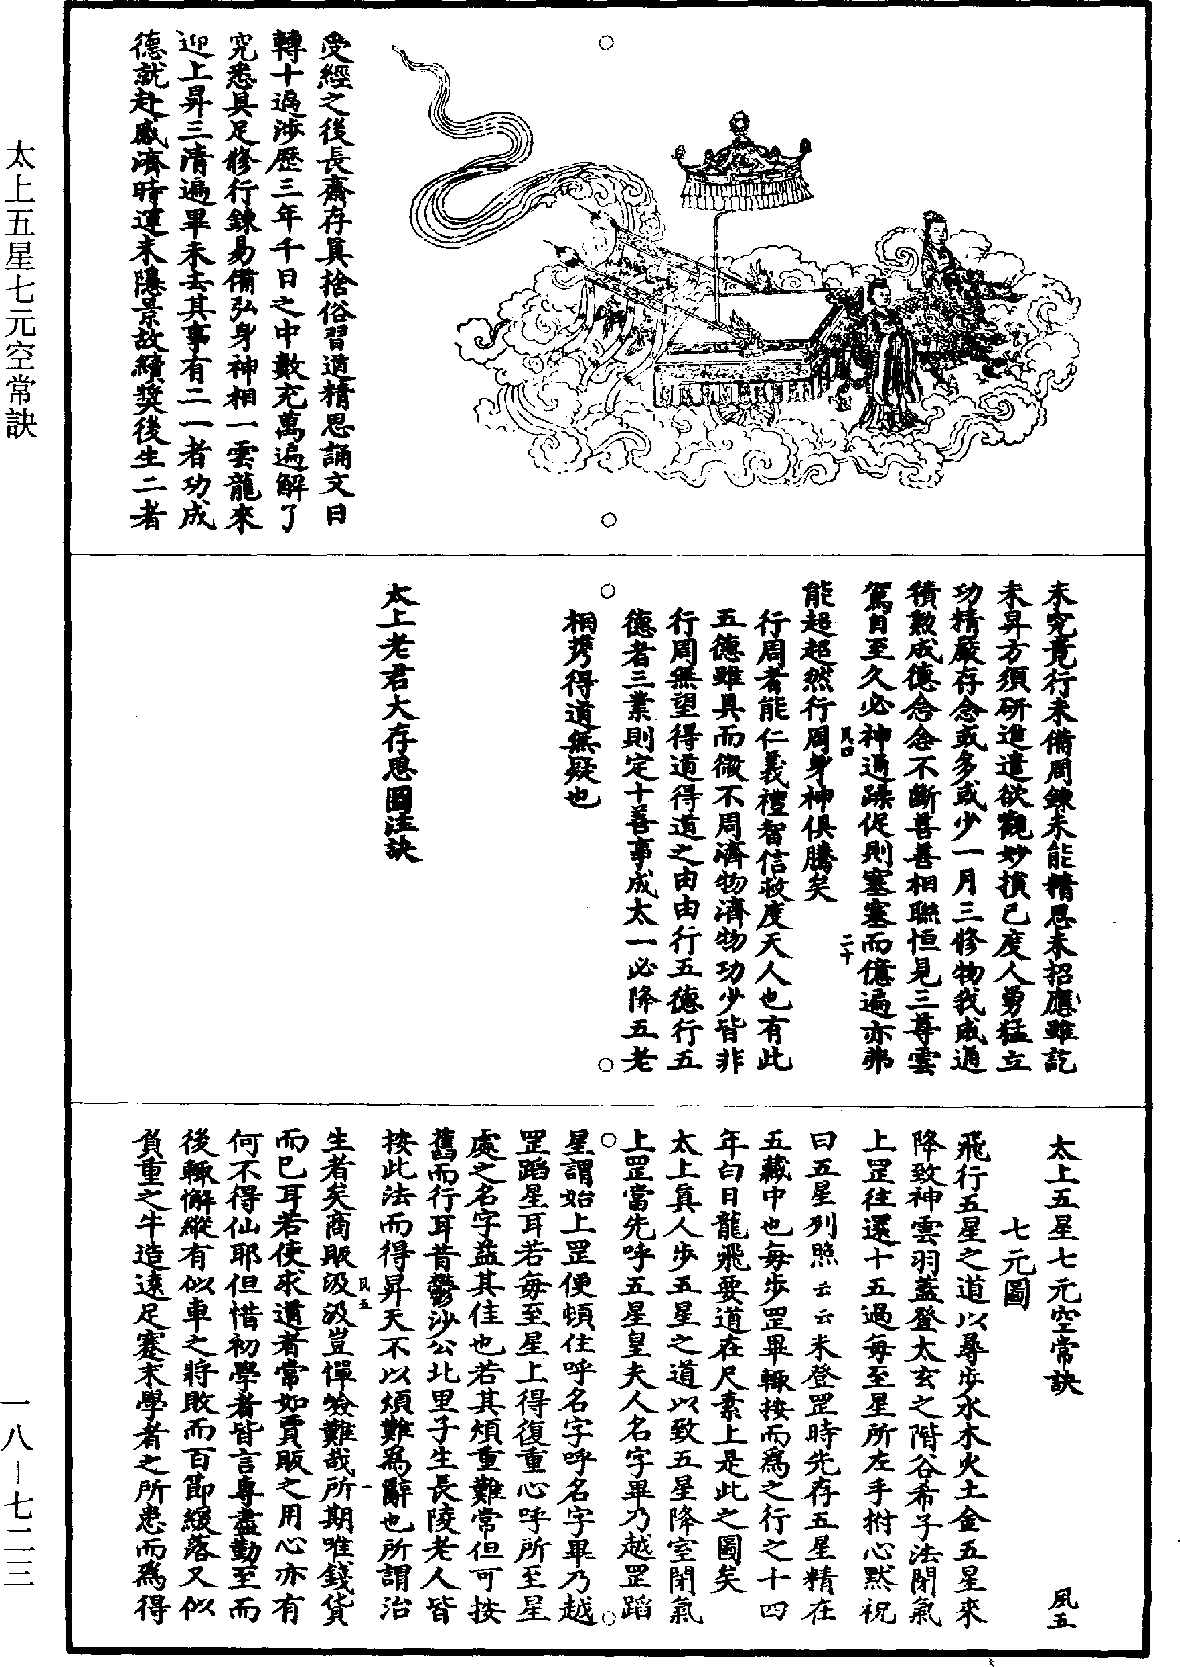 太上五星七元空常訣
一八—七二三
受經之後長齋存真捨俗習道精思誦文日
轉十遍涉歷三年千日之中數充萬遍解了
究悉具足修行鍊易備弘身神相一雲龍來
迎上昇三清遍畢未去其事有二一者功成
德就赴感濟時運未隱景故續獎後生二者
未究竟行未備周鍊未能精思未招應雖訖
未昇方須研進遣欲觀妙損己度人勇猛立
功精嚴存念或多或少一月三修物我咸通
積勲成德念念不斷善善相聯恒見三尊雲
駕自至久必神通躁促則塞塞而億遍亦弗
風四
二十
能超超然行周身神俱騰矣
行周者能仁義禮智信救度天人也有此
五德雖具而微不周濟物濟物功少皆非
行周無望得道得道之由由行五德行五
德者三業則定十善事成太一必降五老
相携得道無疑也
太上老君大存思圖注訣
太上五星七元空常訣
風五
七元圖
飛行五星之道以尋步水木火土金五星來
降致神雲羽蓋登太玄之階谷希子法閉氣
上罡往還十五過每至星所左手拊心默祝
曰五星列照云云未登罡時先存五星精在
五藏中也每步罡畢輒按而為之行之十四
年白日龍飛要道在尺素上是此之圖矣
太上真人步五星之道以致五星降室閉氣
上罡當先呼五星皇夫人名字畢乃越罡蹈
星謂始上罡便頓住呼名字呼名字畢乃越
罡蹈星耳若每至星上得復重心呼所至星
處之名字益其佳也若其煩重難常但可按
舊而行耳昔鬱沙公北里子生長陵老人皆
按此法而得昇天不以煩難為辭也所謂治
風五
一
生者矣商販汲汲豈憚嶮難哉所期唯錢貨
而已耳若使求道者常如賈販之用心亦有
何不得仙耶但惜初學者皆言專盡勤至而
後輒懈縱有似車之將敗而百節緩落又似
負重之牛造遠足蹇末學者之所患而為得